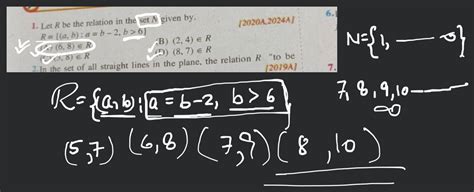 1. Let R be the relation in the set A given by.
[2020A,2024A]
R = {(a, b) : a = b − 2, b > 6}
(6, 8) ∈ R
(B) (2, 4) ∈ R
(3, 8) ∈ R
(8, 7) ∈ R
2. In the set of all straight lines in the plane, the relation R "to be
[2019A]
6.
7.
N={1, —— ∞}
7, 8, 9, 10 ——
∞
R={a,b): a = b-2, b > 6
(5,7) (6,8) (7,9) (8,10)